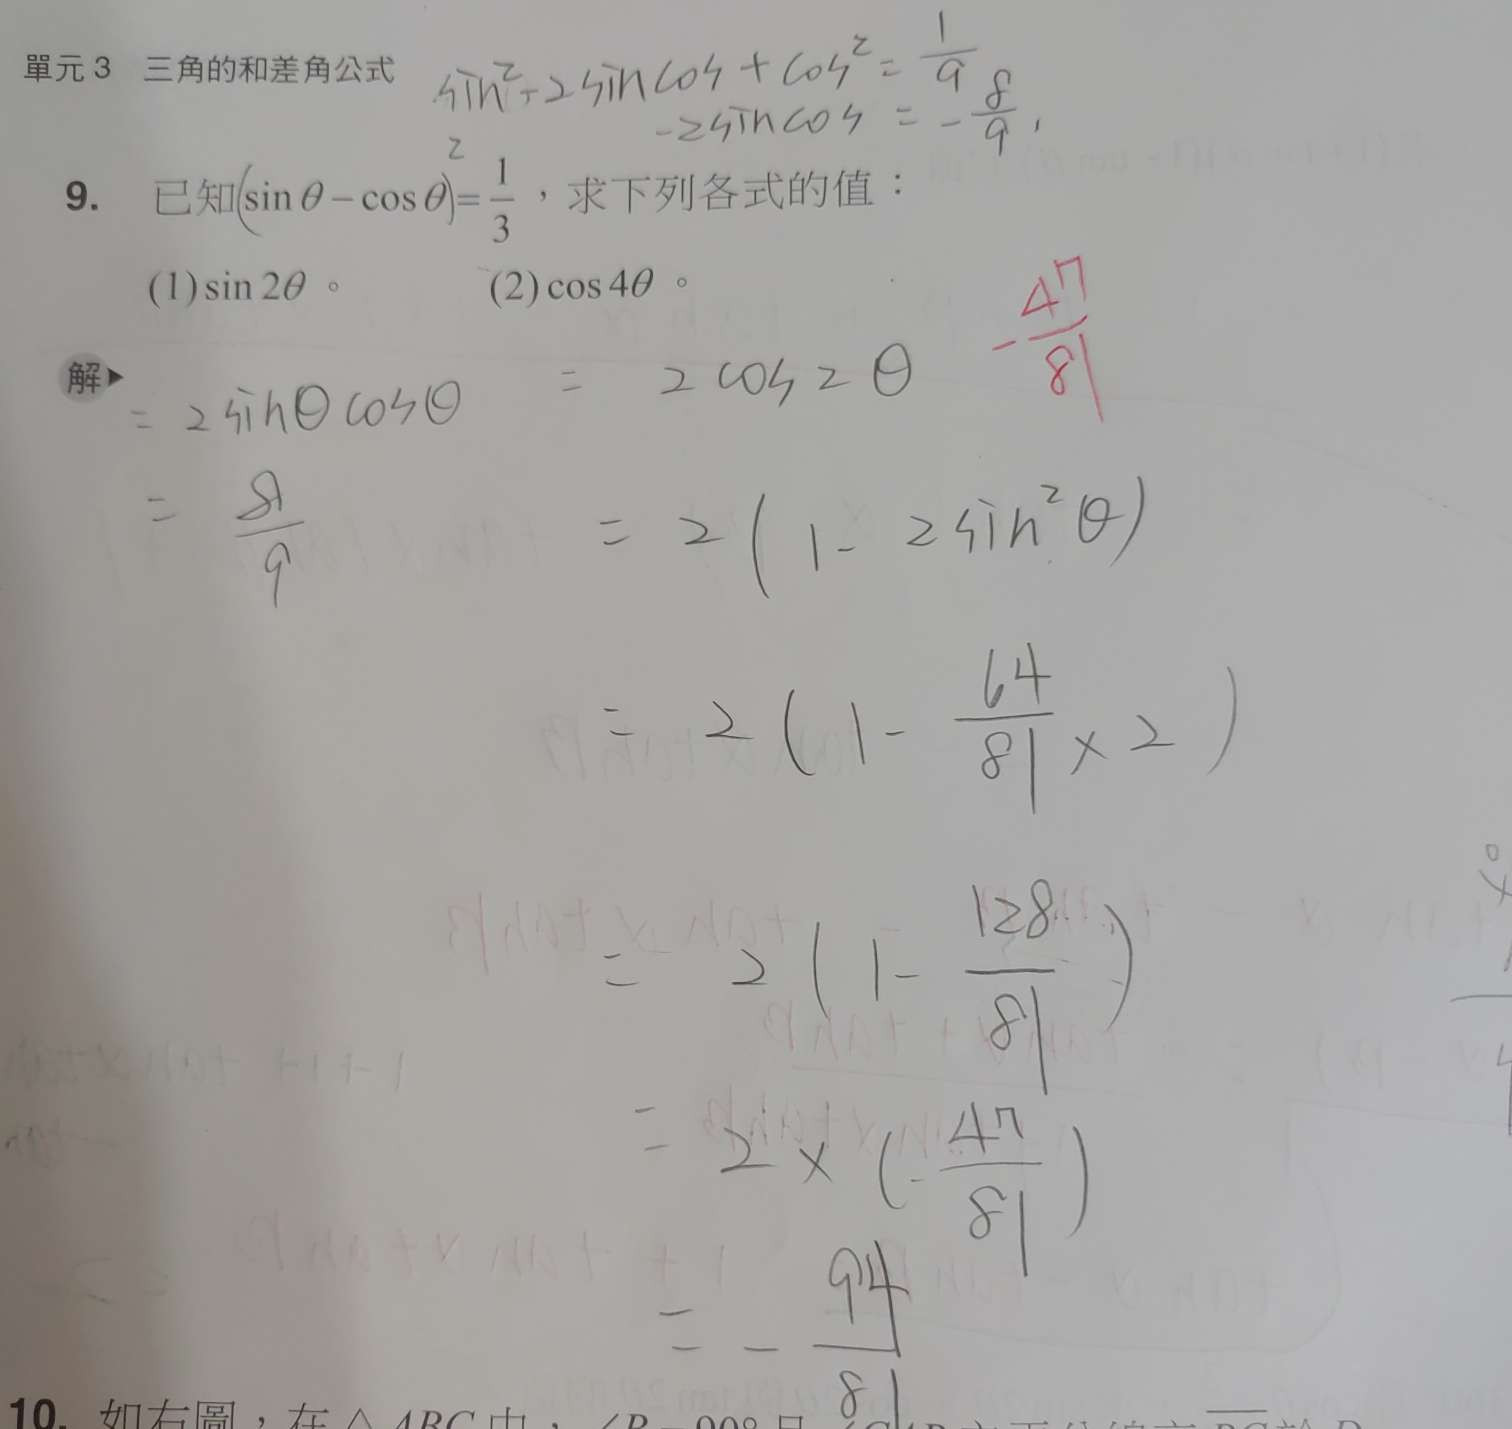 單元3 三角的和差角公式
sin² - 2sincos + cos² = 1/9
-2sincos = -8/9
9. 已知(sin θ − cos θ)² = 1/3，求下列各式的值：
(1) sin 2θ。 (2) cos 4θ。
-47/81
解▶ = 2sinθcosθ = 2cos2θ
= 8/9 = 2(1 - 2sin²θ)
= 2(1 - 64/81 × 2)
= 2(1 - 128/81)
= 2 × (-47/81)
= -94/81
10. 如右圖，在△ABC中，